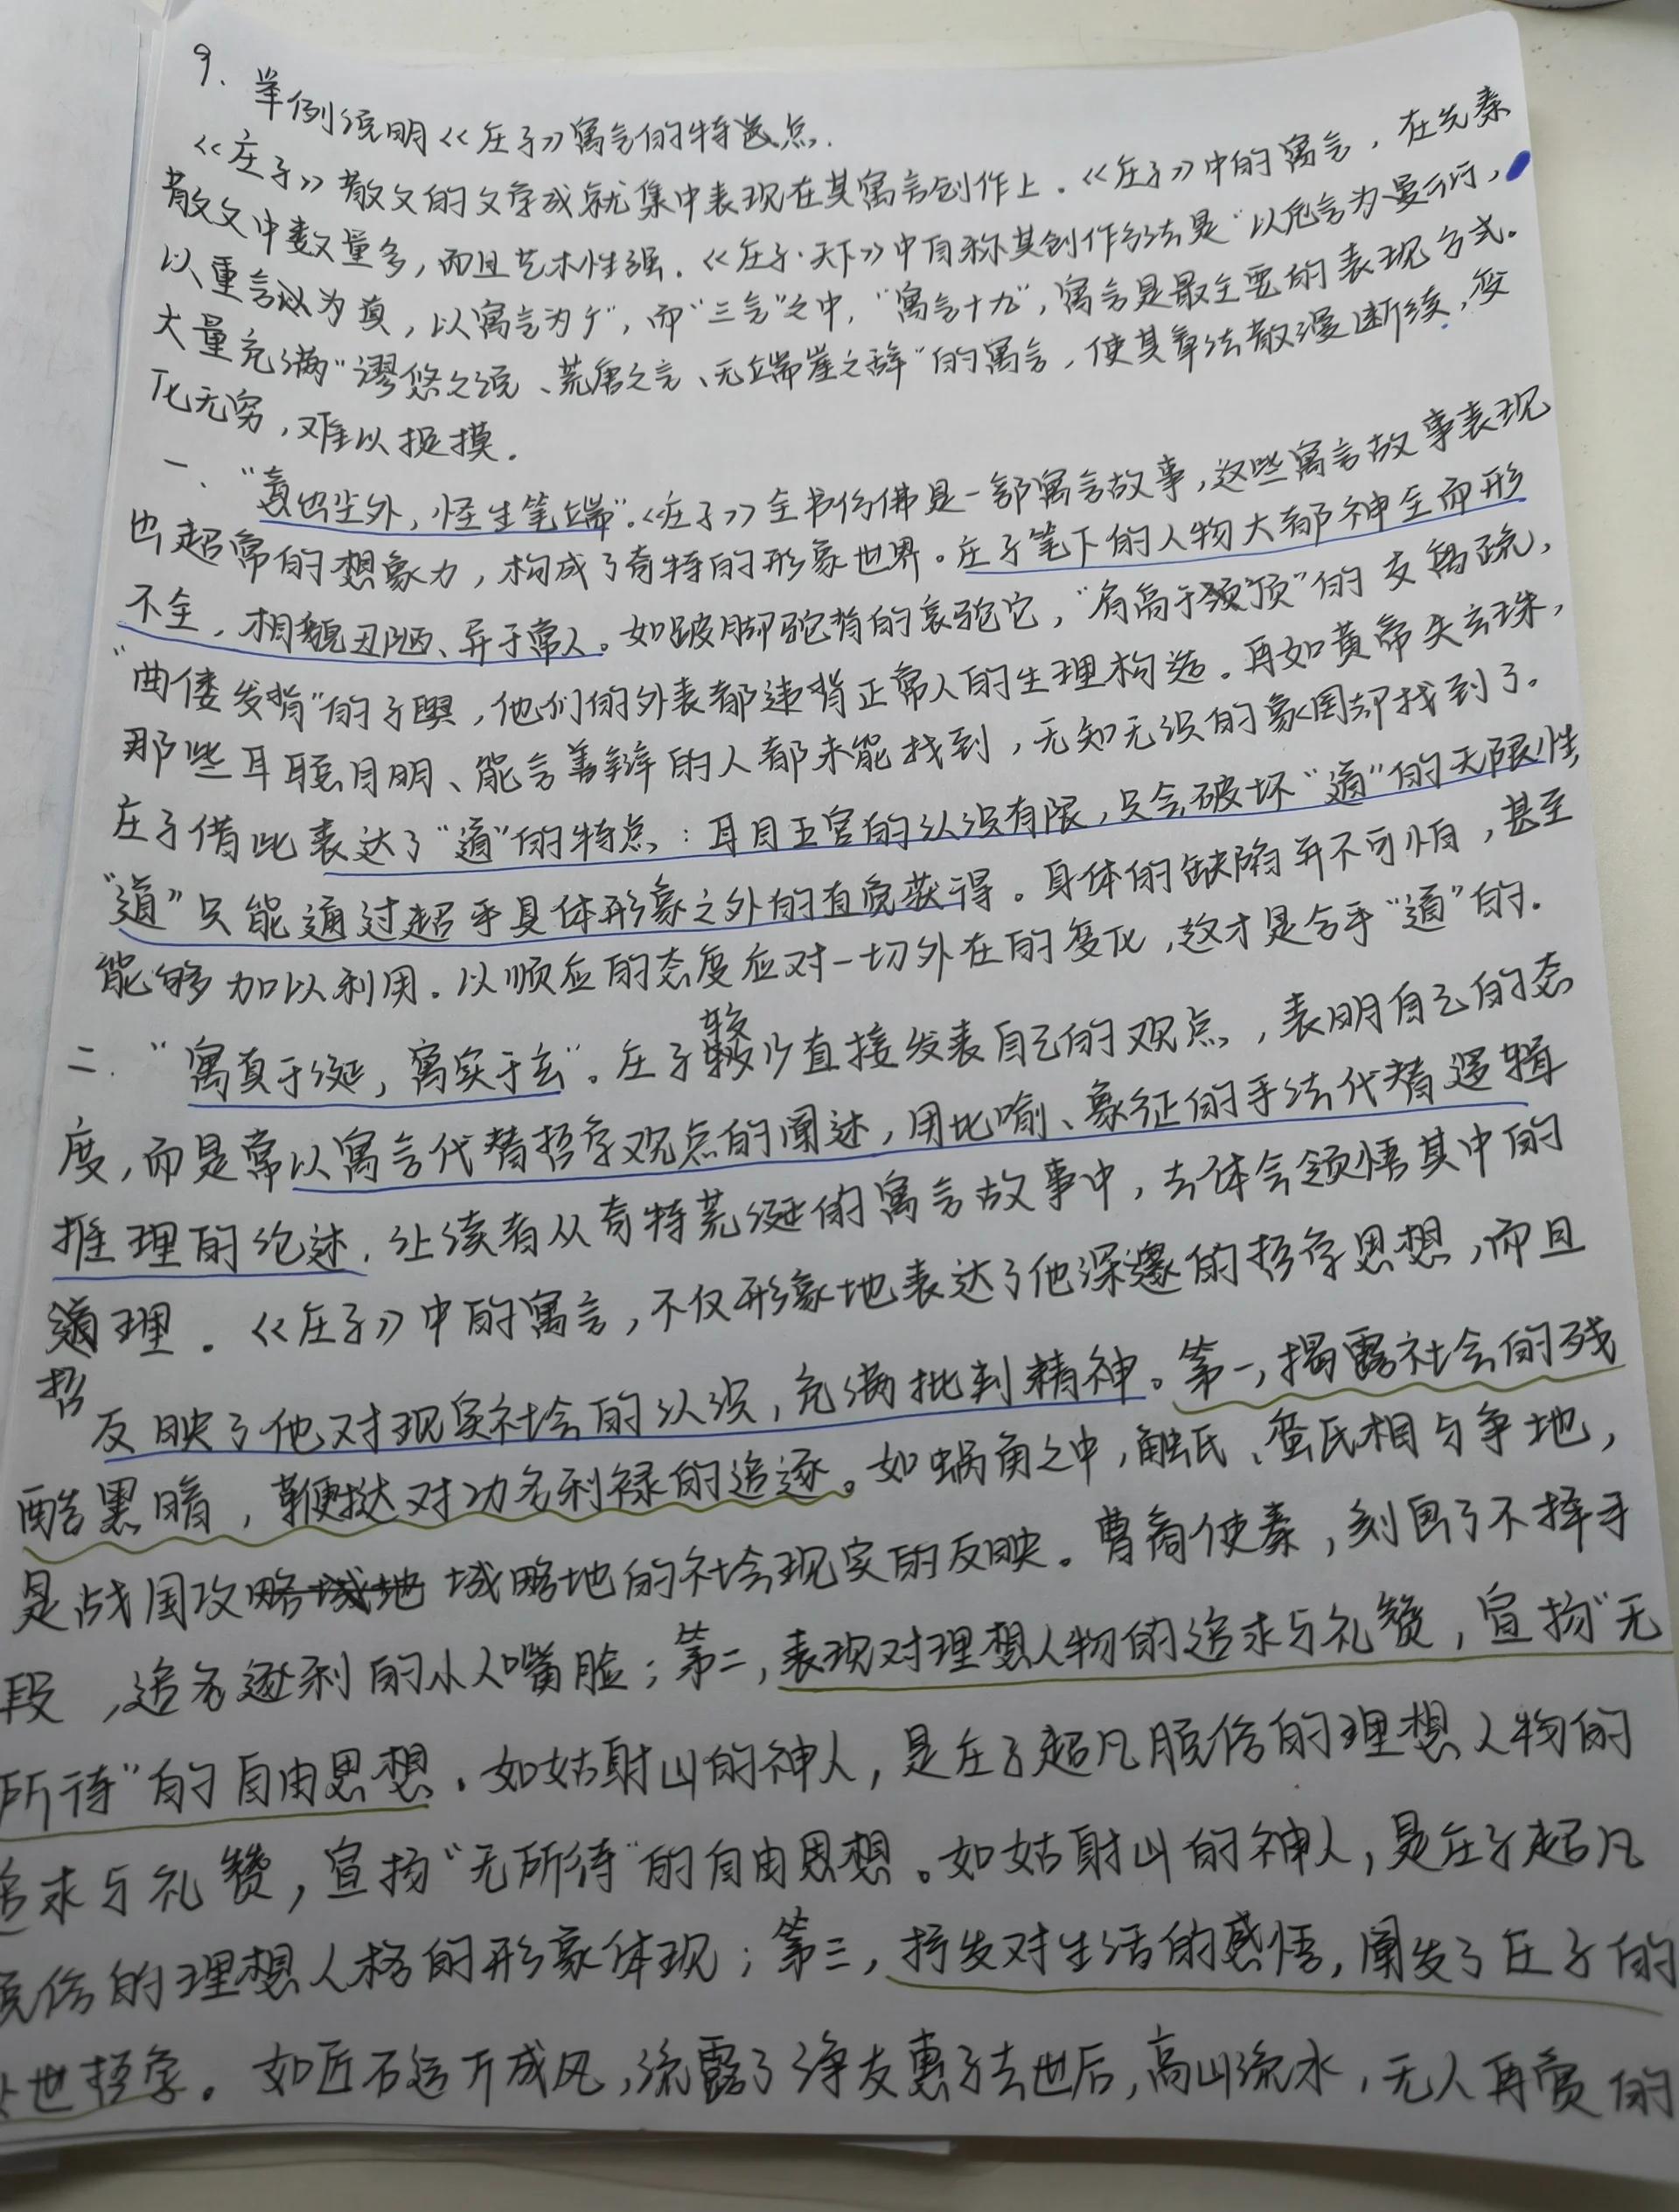 9. 举例说明《庄子》寓言的特点.
《庄子》散文的文学成就集中表现在其寓言创作上.《庄子》中的寓言, 在先秦
散文中数量多, 而且艺术性强.《庄子·天下》中自称其创作方法是"以卮言为曼衍,
以重言为真, 以寓言为广", 而"三言"之中, "寓言十九", 寓言是最主要的表现方式。
大量充满"谬悠之说、荒唐之言、无端崖之辞"的寓言, 使其章法散漫断续, 变
化无穷, 难以捉摸.
一、"意出尘外, 怪生笔端".《庄子》全书仿佛是一部寓言故事, 这些寓言故事表现
出超常的想象力, 构成了奇特的形象世界。庄子笔下的人物大都神全而形
不全, 相貌丑陋、异于常人。如跛脚驼背的哀骀它, "肩高于顶"的支离疏,
"曲偻发背"的子舆, 他们的外表都违背正常人的生理构造。再如黄帝失玄珠,
那些耳聪目明、能言善辩的人都未能找到, 无知无识的象罔却找到了。
庄子借此表达了"道"的特点: 耳目五官的认识有限, 只会破坏"道"的无限性,
"道"只能通过超乎具体形象之外的直觉获得。身体的缺陷并不可怕, 甚至
能够加以利用. 以顺应的态度应对一切外在的变化, 这才是合乎"道"的.
二."寓真于诞, 寓实于玄"。庄子较少直接发表自己的观点, 表明自己的态
度, 而是常以寓言代替哲学观点的阐述, 用比喻、象征的手法代替逻辑
推理的论述, 让读者从奇特荒诞的寓言故事中, 去体会领悟其中的
哲理.《庄子》中的寓言, 不仅形象地表达了他深邃的哲学思想, 而且
反映了他对现实社会的认识, 充满批判精神。第一, 揭露社会的残
酷黑暗, 鞭挞对功名利禄的追逐。如蜗角之中, 触氏、蛮氏相与争地,
是战国攻城略地的社会现实的反映。曹商使秦, 刻画了不择手
段, 追名逐利的小人嘴脸; 第二, 表现对理想人物的追求与礼赞, 宣扬"无
所待"的自由思想. 如姑射山的神人, 是庄子超凡脱俗的理想人物的
追求与礼赞, 宣扬"无所待"的自由思想。如姑射山的神人, 是庄子超凡
脱俗的理想人格的形象体现; 第三, 抒发对生活的感悟, 阐发了庄子的
处世哲学。如匠石运斤成风, 流露了诤友惠子去世后, 高山流水, 无人再赏的